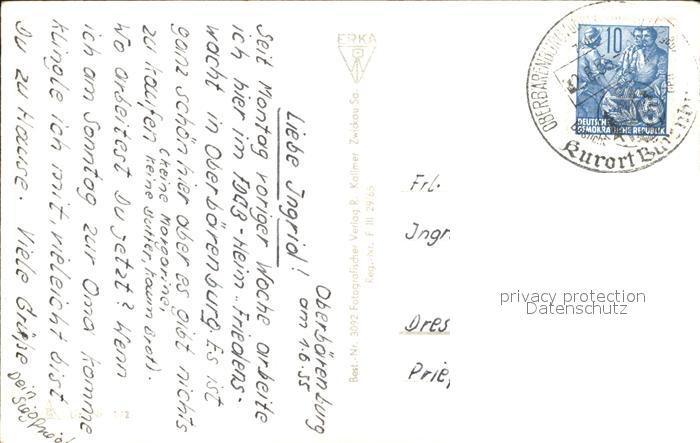 Oberbärenburg
am 1.6.55
Liebe Ingrid!
Seit Montag voriger Woche arbeite
ich hier im FDGB-Heim „Friedens-
wacht" in Oberbärenburg. Es ist
ganz schön hier aber es gibt nichts
zu kaufen (keine Margarine,
keine Butter, kaum Brot).
Wo arbeitest Du jetzt? Wenn
ich am Sonntag zur Oma komme
klingle ich mit, vieleicht bist
Du zu Hause. Viele Grüße
Dein Siegfried
ERKA
Best.-Nr. 3092 Fotografischer Verlag R. Kallmer Zwickau Sa.
Reg.-Nr. F III 29/65
10
DEUTSCHE
DEMOKRATISCHE REPUBLIK
OBERBÄRENBURG
Kurort
Frl.
Ingr
Dres
Prie
privacy protection
Datenschutz